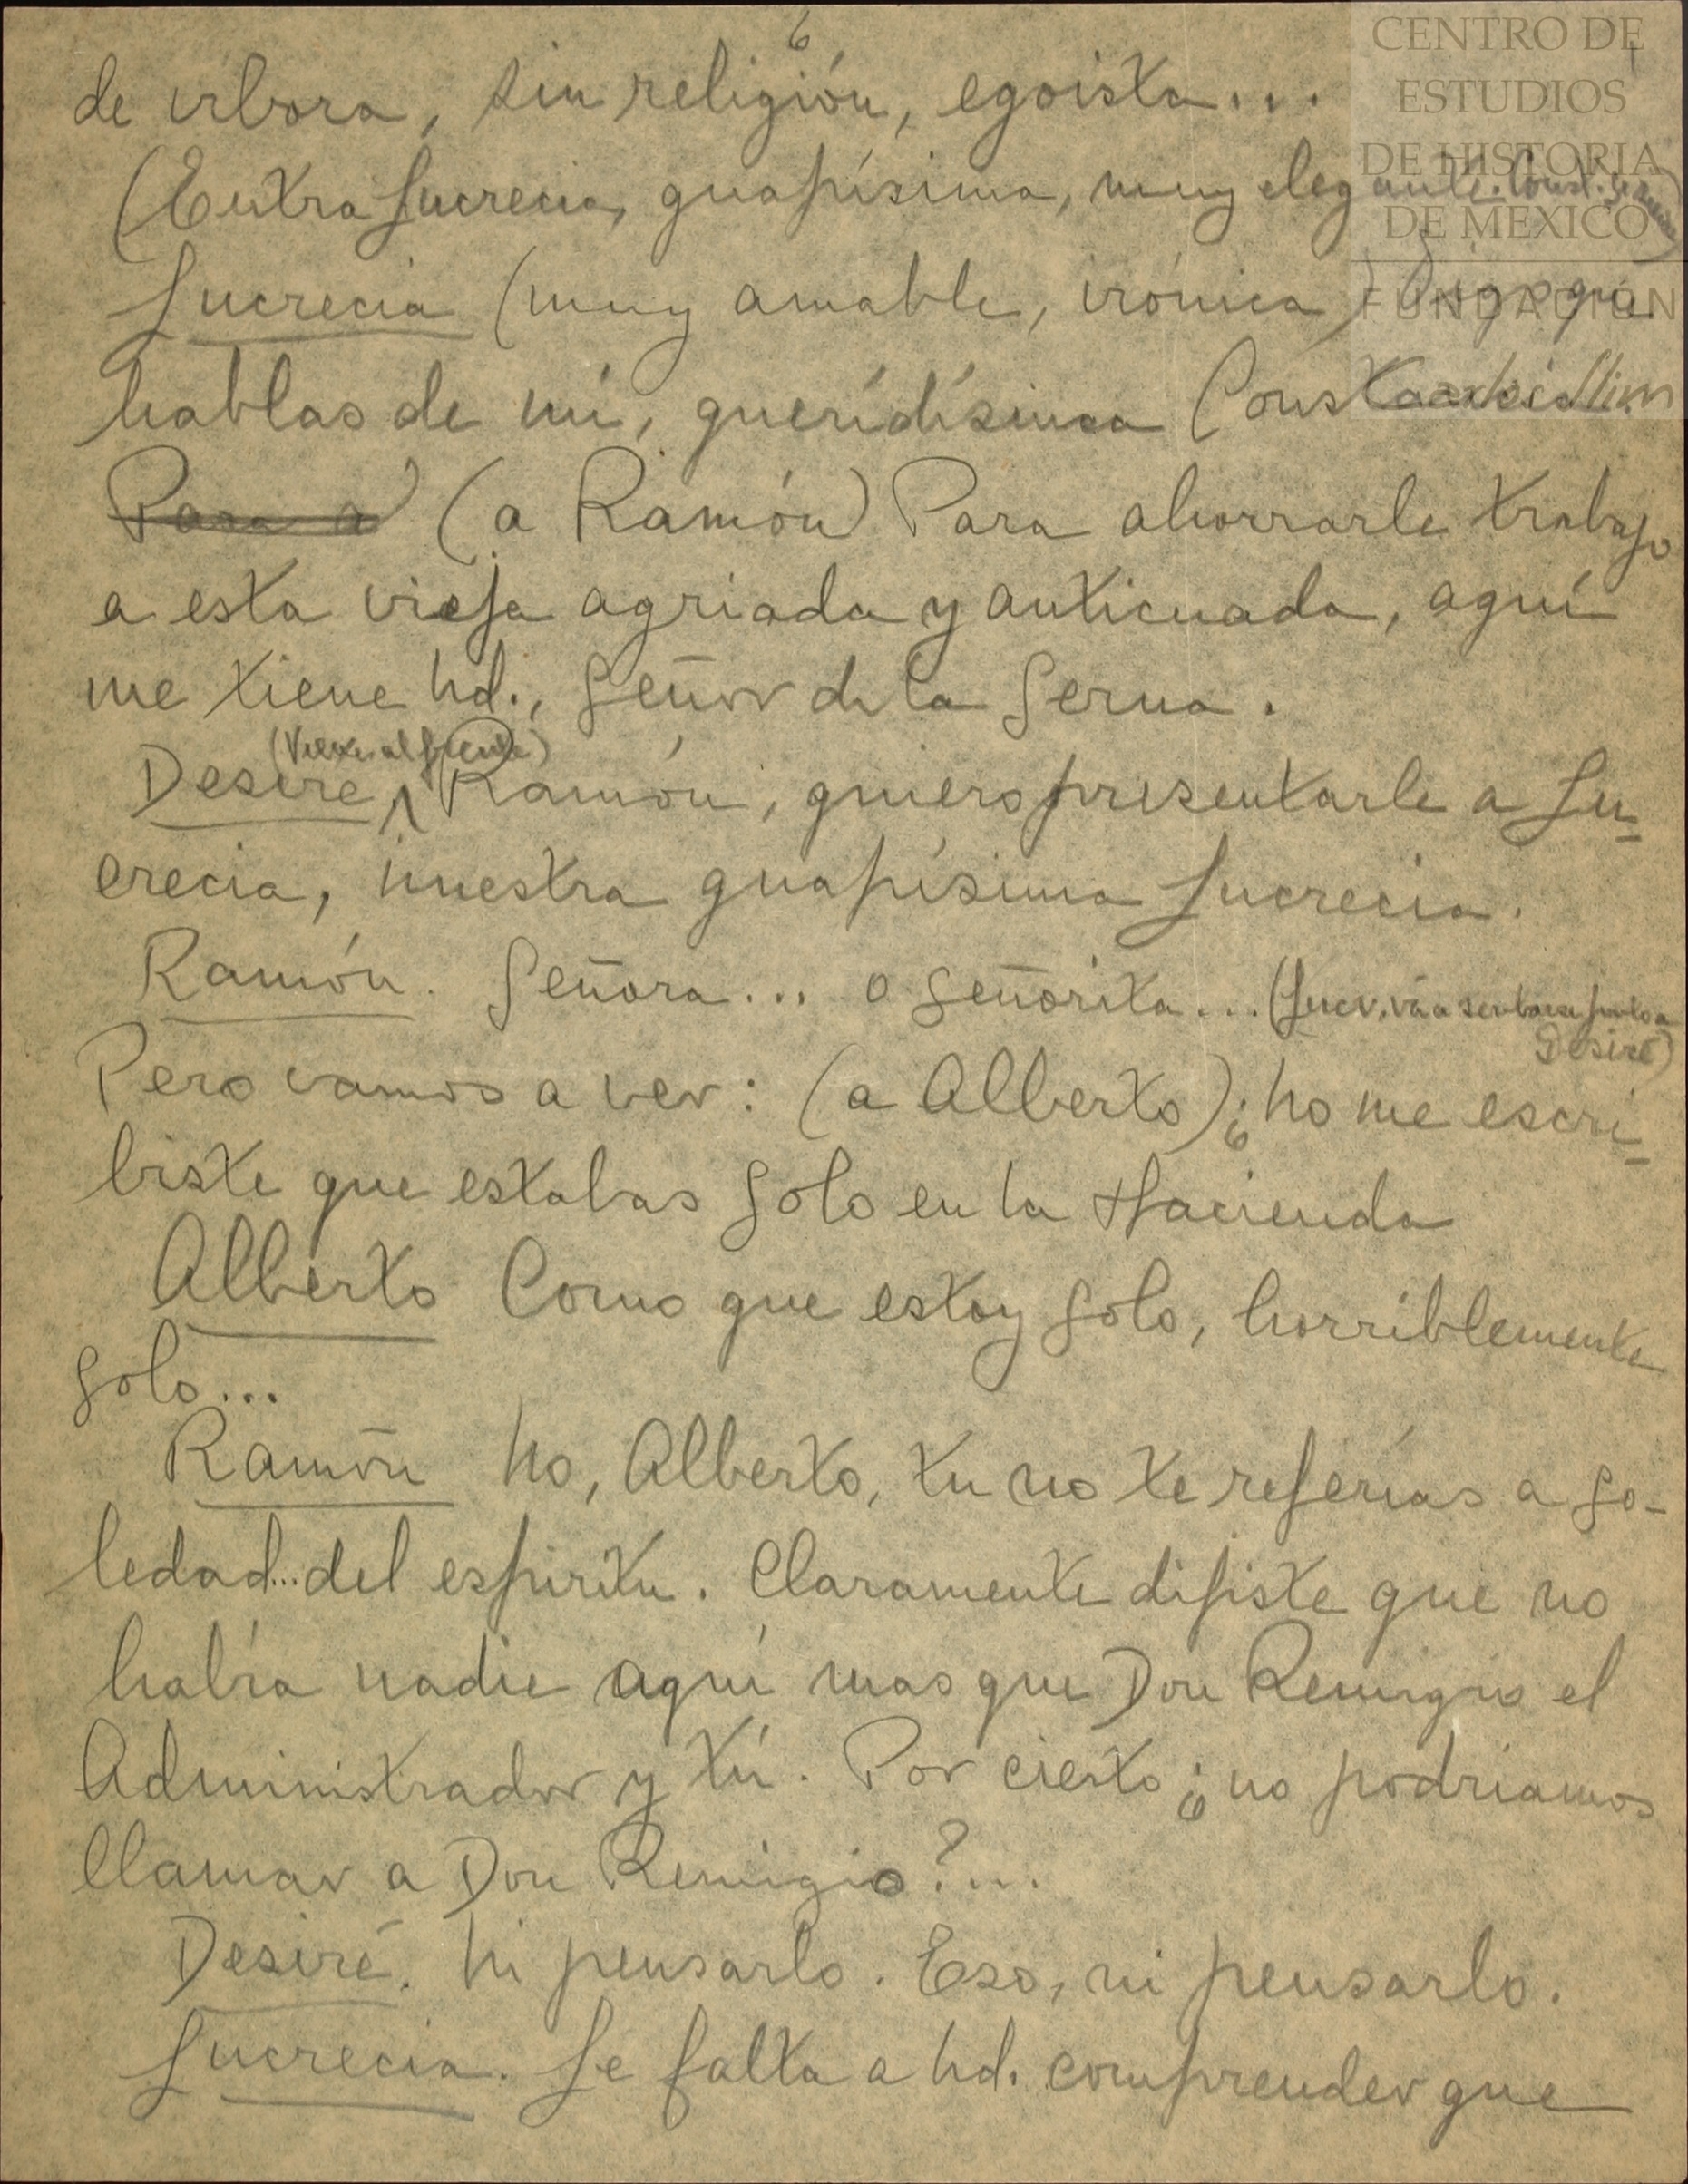 6
CENTRO DE
ESTUDIOS
DE HISTORIA
DE MEXICO
FUNDACIÓN
de víbora, sin religión, egoista...
(Entra Lucrecia, guapísima, muy elegante. Const.
Lucrecia (muy amable, irónica) Oigo que
hablas de mí, queridísima
Para a (a Ramón) Para ahorrarle trabajo
a esta vieja agriada y anticuada, aquí
me tiene Ud., Señor de la Serna.
(Vuelve al
Desiré, Ramón, quiero presentarle a Lu-
crecia, nuestra guapísima Lucrecia.
Ramón. Señora... o señorita... (Lucr. vá a sentarse junto a
Desiré)
Pero vamos a ver: (a Alberto) ¿No me escri-
biste que estabas solo en la Hacienda
Alberto Como que estoy solo, horriblemente
solo...
Ramón No, Alberto, tu no te referías a so-
ledad... del espiritu. Claramente dijiste que no
había nadie aquí mas que Don Remigio el
Administrador y tú. Por cierto ¿no podriamos
llamar a Don Remigio?...
Desiré. Ni pensarlo. Eso, ni pensarlo.
Lucrecia. Le falta a Ud. comprender que